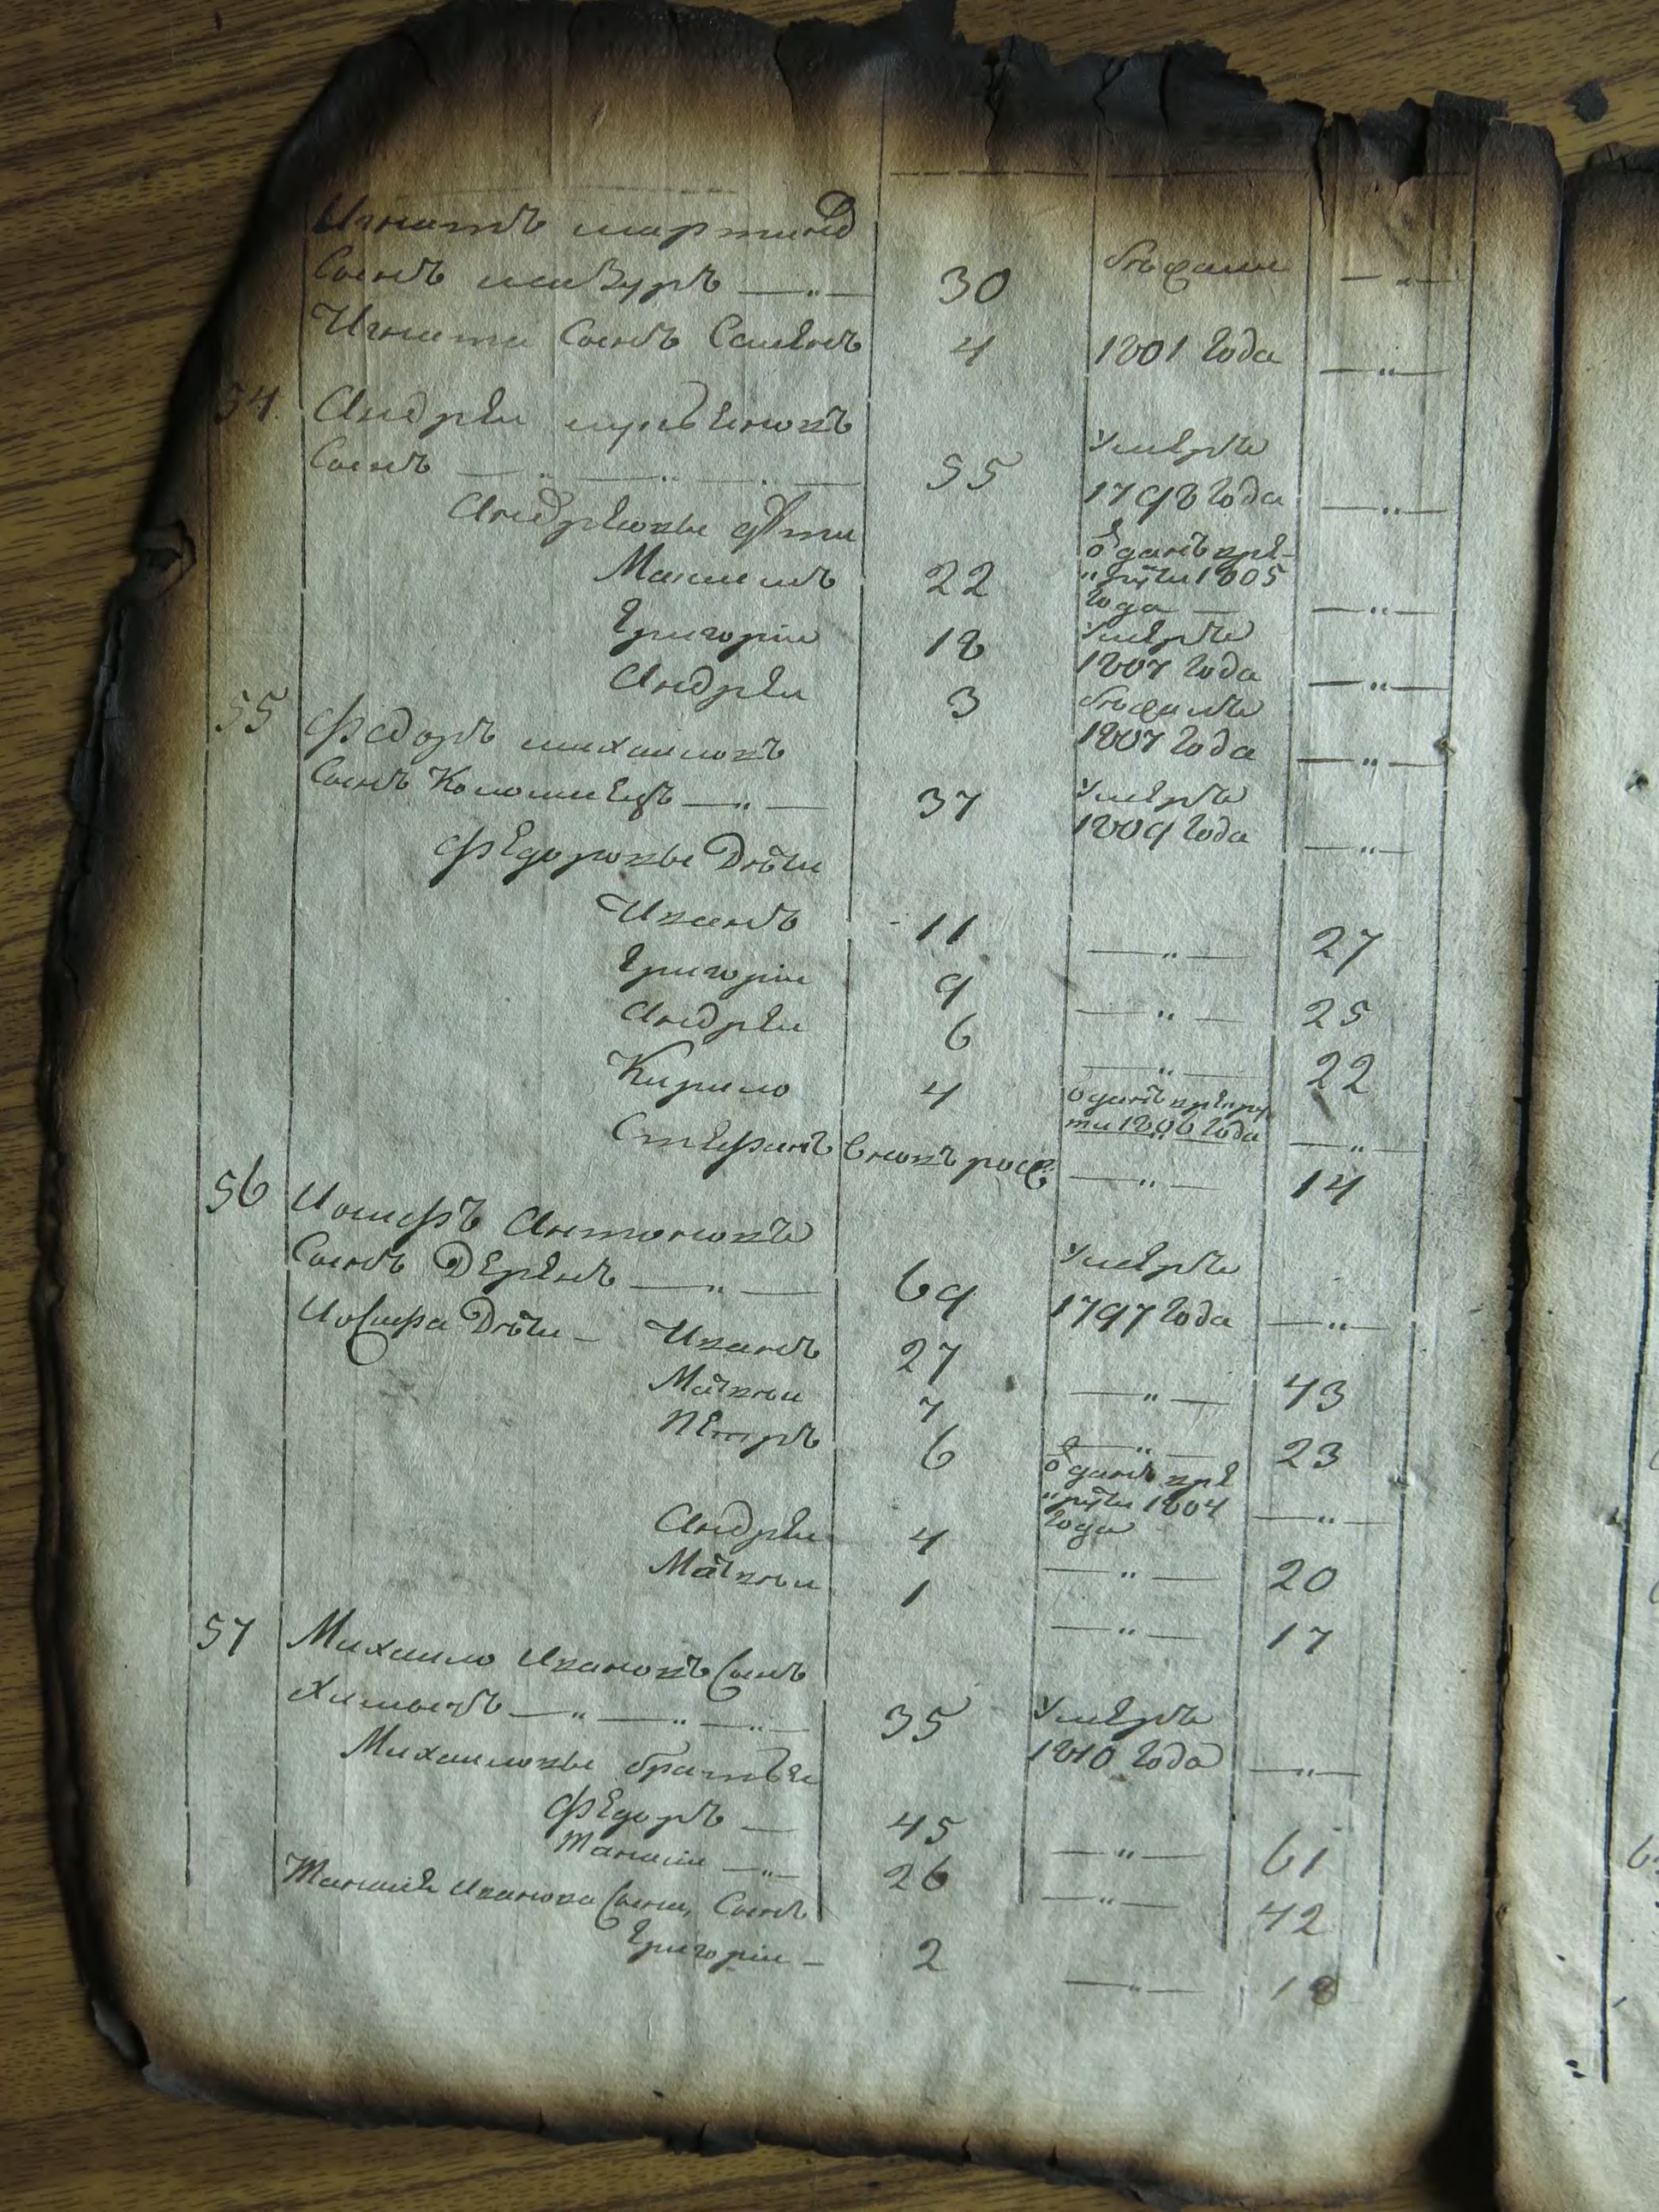 Игнатъ мартинъ
Сынъ мазуръ —„— 30 бѣжали —„—
Игнати Сынъ Семенъ 4 1801 года —„—
54. Андреи
Сынъ —„—„—„— 55 Умеръ 1798 года —„—
Андреювы дѣти
Максимъ 22 Ѿданъ врекруты 1805 года — —„—
Григоріи 18 Умеръ 1807 года —„—
Андреи 3 бѣжалъ 1807 года —„—
55 Федоръ михаиловъ
Сынъ Коломиецъ —„— 37 Умеръ 1809 года —„—
Федоровы Дѣти
Иванъ 11 —„— 27
Григоріи 9 —„— 25
Андреи 6 —„— 22
Кирило 4 Ѿданъ врекруты 1806 года —„—
Стефанъ вновъ рожд: —„— 14
56 Иосифъ Антоновъ
Сынъ Деренъ —„— 69 Умеръ 1797 года —„—
Иосифа Дѣти — Иванъ 27 —„— 43
Матвѣи 7 —„— 23
Петръ 6 Ѿданъ врекруты 1804 года —„—
Андреи 4 —„— 20
Матвѣи 1 —„— 17
57 Михаило Ивановъ Сынъ
Химичъ —„—„—„— 35 Умеръ 1810 года —„—
Михаиловы братья
Федоръ — 45 —„— 61
Манасіи —„— 26 —„— 42
Манасіи Иванова Сына, Сынъ
Григоріи — 2 —„— 18